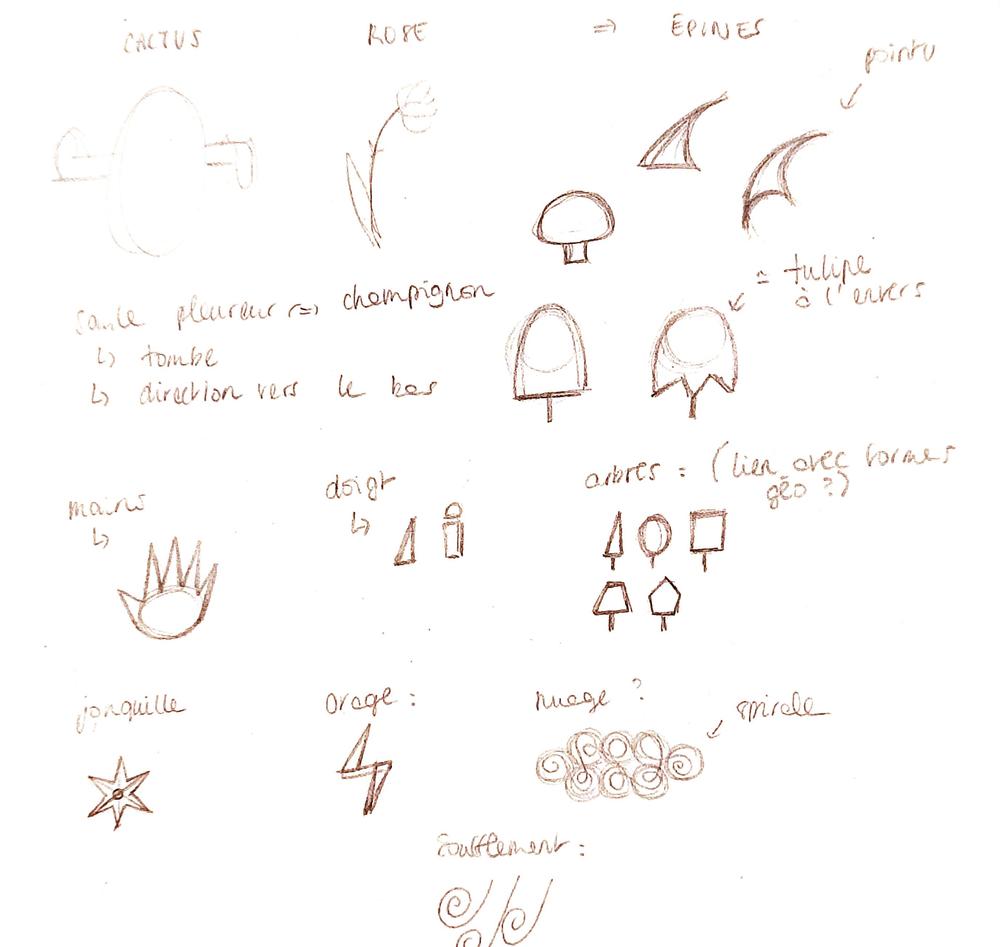 CACTUS ROSE => ÉPINES
pointu
Saule pleureur => champignon
↳ tombe
↳ direction vers le bas
= tulipe
à l'envers
mains
↳
doigt
↳
arbres : (lien avec formes
géo ?)
jonquille
Orage :
nuage ?
spirale
Soufflement :